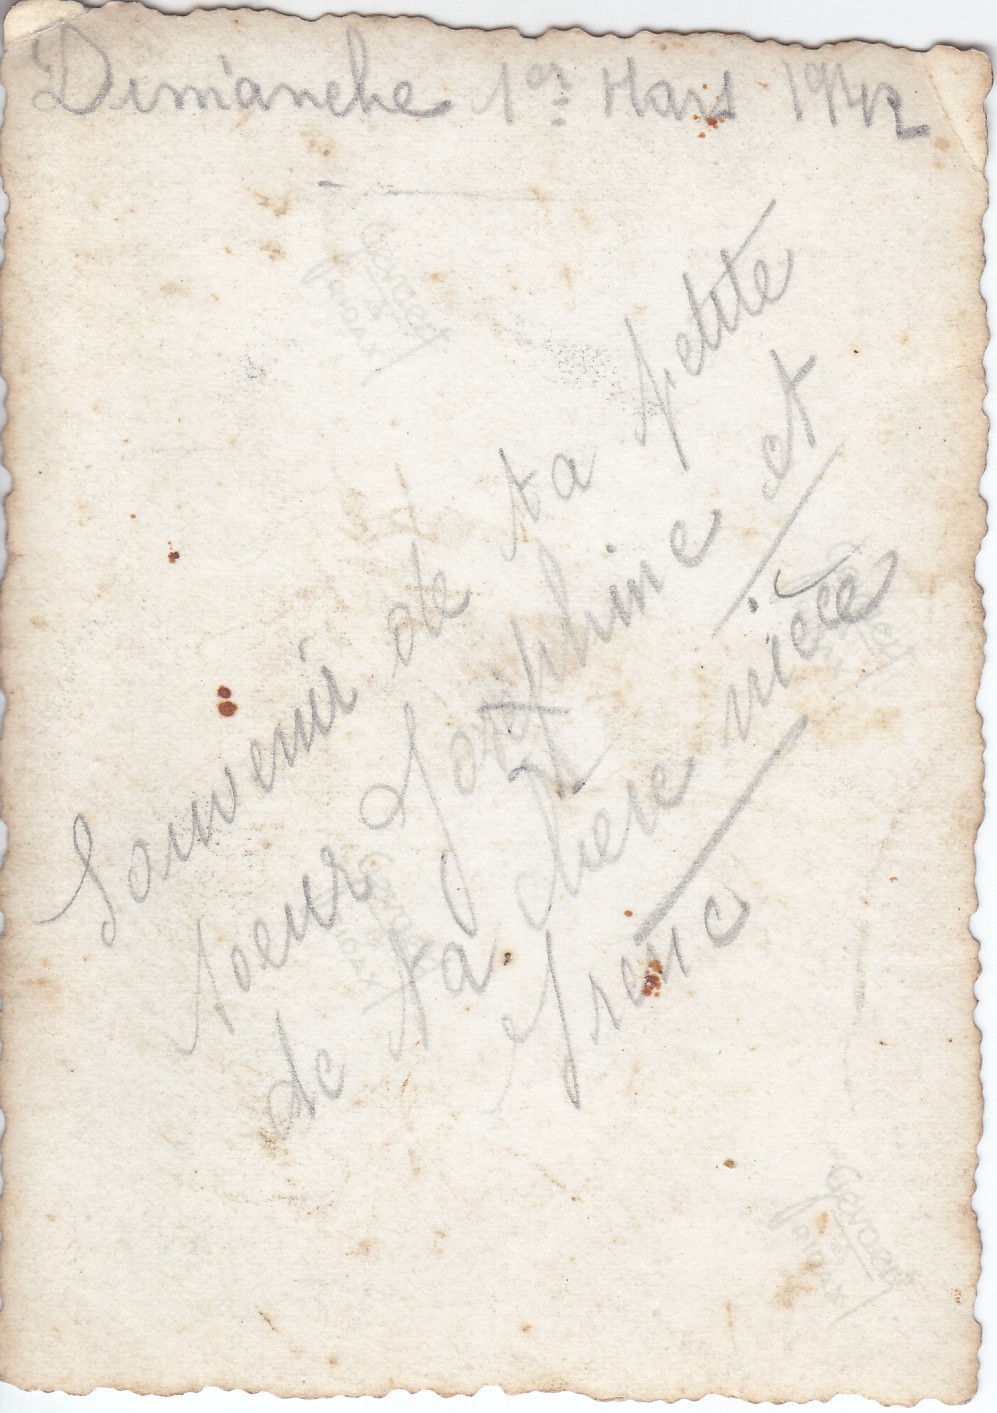 Dimanche 1er Mars 1942
Souvenir de ta petite
soeur Josephine et
de ta chere nièce
Irene
Gevaert
RIDAX
Gevaert
RIDAX
Gevaert
Gevaert
RIDAX